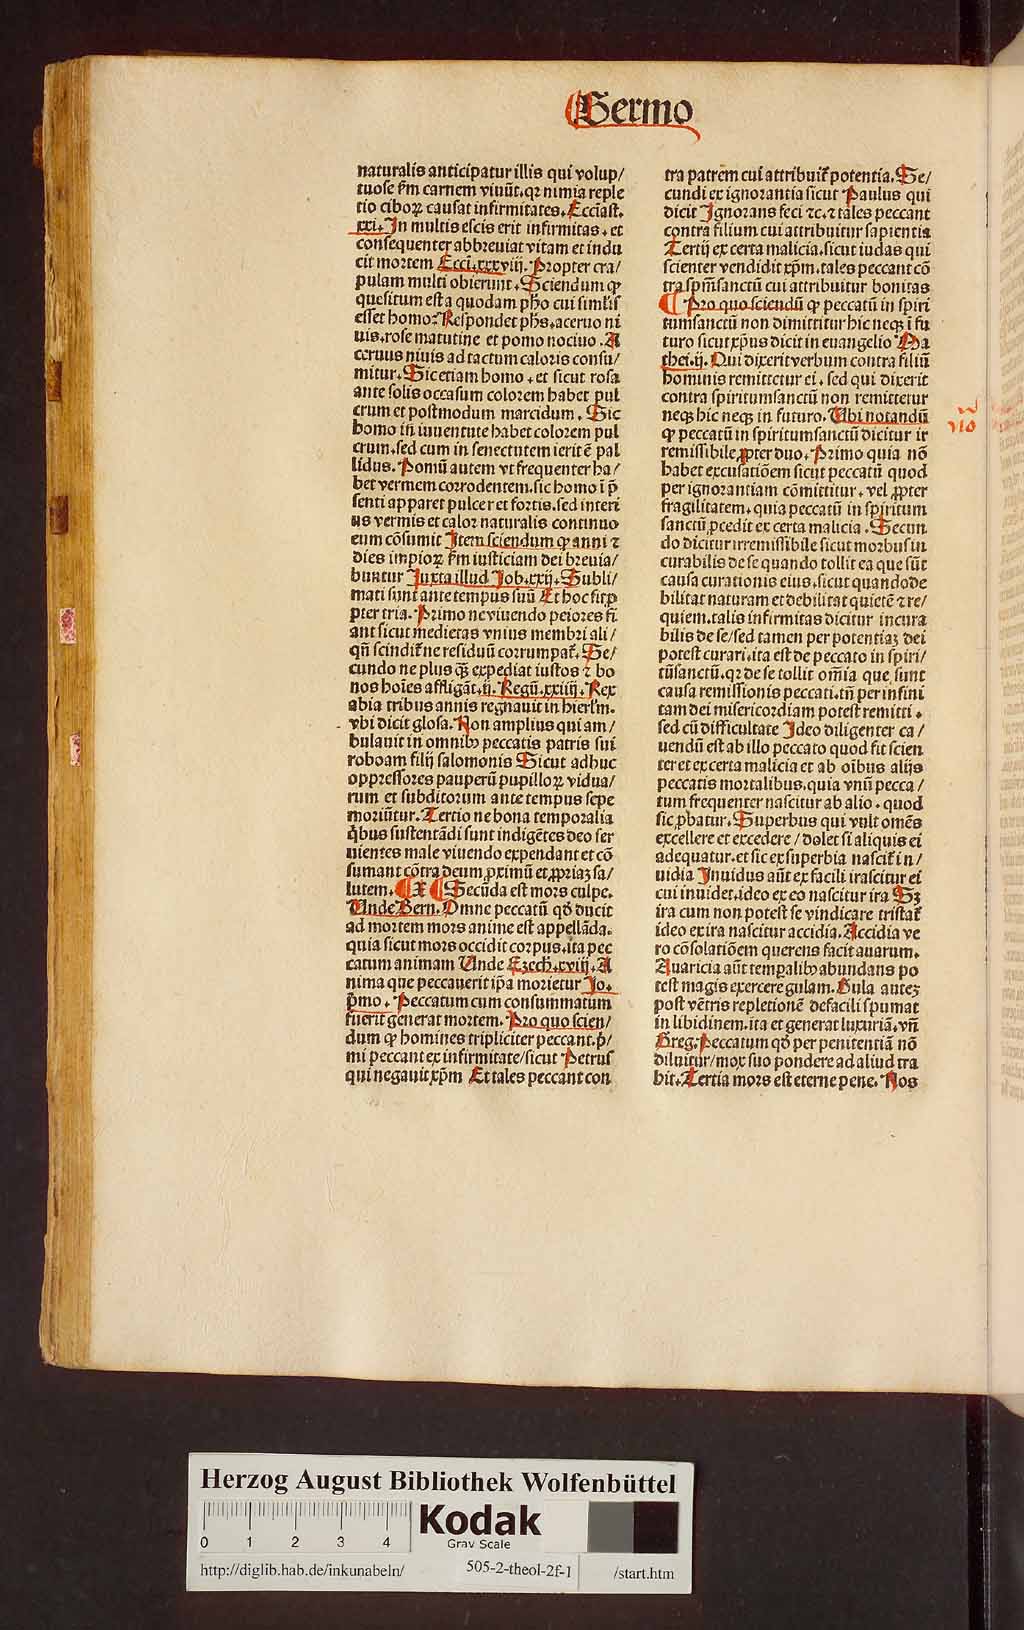 Sermo
naturalis anticipatur illis qui volup/
tuose ẜm carnem viuūt. qꝛ nimia reple
tio ciboꝝ causat infirmitates. Eccīast.
xxi. In multis escis erit infirmitas. et
consequenter abbreuiat vitam et indu
cit mortem Ecci. xxxviij. Propter cra/
pulam multi obierunt. Sciendum ꝙ
quesitum est a quodam pho cui similis
esset homo: Respondet phs. aceruo ni
uis. rose matutine et pomo nociuo. A
ceruus niuis ad tactum caloris consu/
mitur. Sic etiam homo. et sicut rosa
ante solis occasum colorem habet pul
crum et postmodum marcidum. Sic
homo in iuuentute habet colorem pul
crum. sed cum in senectutem ierit ē pal
lidus. Pomū autem vt frequenter ha/
bet vermem corrodentem. sic homo ī p̄
senti apparet pulcer et fortis. sed interi
us vermis et calor naturalis continuo
eum cōsumit Item sciendum ꝙ anni ⁊
dies impioꝝ ẜm iusticiam dei breuia/
buntur Juxta illud Job. xxij. Subli/
mati sunt ante tempus suū Et hoc fit ꝓ
pter tria. Primo ne viuendo peiores fi
ant sicut medietas vnius membri ali/
qn̄ scindit᷑ ne residuū corrumpat᷑. Se/
cundo ne plus qꝫ expediat iustos ⁊ bo
nos hoīes affligāt. ij. Regū. xxiiij. Rex
abia tribus annis regnauit in hierlm̄.
vbi dicit glosa. Non amplius qui am/
bulauit in omnibꝰ peccatis patris sui
roboam filij salomonis Sicut adhuc
oppressores pauperū pupilloꝝ vidua/
rum et subditorum ante tempus sepe
moriūntur. Tertio ne bona temporalia
q̇bus sustentādi sunt indigētes deo ser
uientes male viuendo expendant et cō
sumant cōtra deum ꝓximū et ꝓpriaꝫ sa/
lutem. ¶ X ¶ Secūda est mors culpe.
Unde Bern. Omne peccatū qđ ducit
ad mortem mors anime est appellāda.
quia sicut mors occidit corpus. ita pec
catum animam Unde Ezech. xviij. A
nima que peccauerit ip̄a morietur Jo.
p̄mo. Peccatum cum consummatum
fuerit generat mortem. Pro quo scien/
dum ꝙ homines tripliciter peccant. p̄/
mi peccant ex infirmitate/ sicut Petrus
qui negauit xp̄m Et tales peccant con
tra patrem cui attribuit᷑ potentia. Se/
cundi ex ignorantia sicut Paulus qui
dicit Ignorans feci ⁊c. ⁊ tales peccant
contra filium cui attribuitur sapientia
Tertij ex certa malicia. sicut iudas qui
scienter vendidit xp̄m. tales peccant cō
tra spm̄ sanctū cui attribuitur bonitas
¶ Pro quo sciendū ꝙ peccatū in spiri
tumsanctū non dimittitur hic neqꝫ ī fu
turo sicut xp̄us dicit in euangelio Ma
thei. ij. Qui dixerit verbum contra filiū
hominis remittetur ei. sed qui dixerit
contra spiritumsanctū non remittetur
neqꝫ hic neqꝫ in futuro. Ubi notandū
ꝙ peccatū in spiritumsanctū dicitur ir
remissibile ꝓpter duo. Primo quia nō
habet excusatiōem sicut peccatū quod
per ignorantiam cōmittitur. vel ꝓpter
fragilitatem. quia peccatū in spiritum
sanctū ꝓcedit ex certa malicia. Secun
do dicitur irremissibile sicut morbus in
curabilis de se quando tollit ea que sūt
causa curationis eius. sicut quando de
bilitat naturam et debilitat quietē ⁊ re/
quiem. talis infirmitas dicitur incura
bilis de se/ sed tamen per potentiaꝫ dei
potest curari. ita est de peccato in spiri/
tūsanctū. qꝛ de se tollit om̄ia que sunt
causa remissionis peccati. tn̄ per infini
tam dei misericordiam potest remitti.
sed cū difficultate Ideo diligenter ca/
uendū est ab illo peccato quod fit scien
ter et ex certa malicia et ab oībus alijs
peccatis mortalibus. quia vnū pecca/
tum frequenter nascitur ab alio. quod
sic ꝓbatur. Superbus qui vult omēs
excellere et excedere/ dolet si aliquis ei
adequatur. et sic ex superbia nascit᷑ in/
uidia Inuidus aūt ex facili irascitur ei
cui inuidet. ideo ex eo nascitur ira Sꝫ
ira cum non potest se vindicare tristat᷑
ideo ex ira nascitur accidia. Accidia ve
ro cōsolatiōem querens facit auarum.
Auaricia aūt tempalibꝰ abundans po
test magis exercere gulam. Gula auteꝫ
post vētris repletionē defacili spumat
in libidinem. ita et generat luxuriā. vn̄
Greg. Peccatum qđ per penitentiā nō
diluitur/ mox suo pondere ad aliud tra
hit. Tertia mors est eterne pene. Nos
Herzog August Bibliothek Wolfenbüttel
0 1 2 3 4
Kodak
Gray Scale
http://diglib.hab.de/inkunabeln/
505-2-theol-2f-1
/start.htm